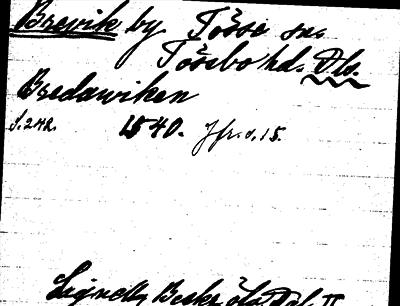 Brevik by Tösse sn.
Tössbo hd. Dls.
Bredawiken
s. 242. 1540. Jfr. s. 15.
Lignell, Beskr. öfv. Dal. II